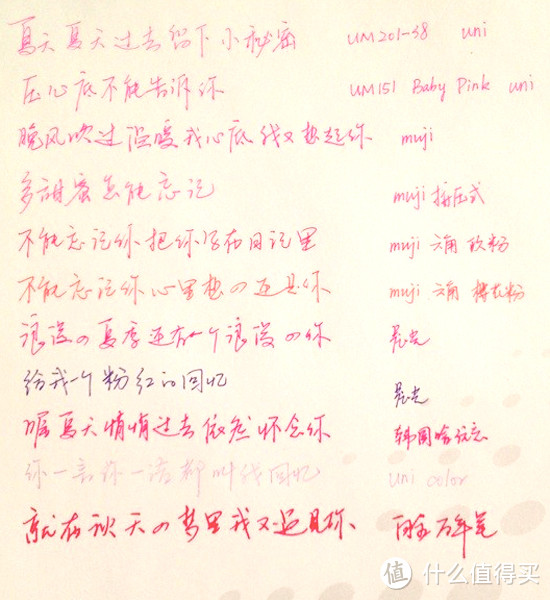 夏天夏天过去留下小秘密 UM201-38 uni
压心底不能告诉你 UM151 Baby Pink uni
晚风吹过温暖我心底我又想起你 muji
多甜蜜怎能忘记 muji 按压式
不能忘记你把你写在日记里 muji 六角 欧粉
不能忘记你心里想の还是你 muji 六角 樱花粉
浪漫の夏季还有一个浪漫の你 晨光
给我一个粉红的回忆 晨光
喔夏天悄悄过去依然怀念你 韩国
你一言你一语都叫我回忆 uni color
就在秋天の梦里我又遇见你 白金万年笔
值 什么值得买